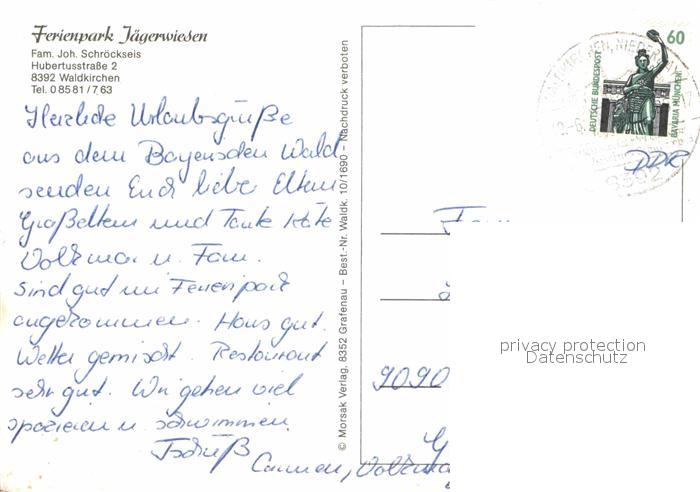 Ferienpark Jägerwiesen
Fam. Joh. Schröckseis
Hubertusstraße 2
8392 Waldkirchen
Tel. 0 85 81 / 7 63
Herzliche Urlaubsgrüße
aus dem Bayerischen Wald
senden Euch liebe Eltern
Großeltern und Tante Käte
Volkmar u. Fam.
Sind gut im Ferienpark
angekommen. Haus gut.
Wetter gemischt. Restaurant
sehr gut. Wir gehen viel
spazieren u. schwimmen.
Tschüß
Carmen, Volkmar
© Morsak Verlag, 8352 Grafenau – Best.-Nr. Waldk. 10/1690 – Nachdruck verboten
60
DEUTSCHE BUNDESPOST
BAVARIA MÜNCHEN
8392
DDR
9090
privacy protection
Datenschutz